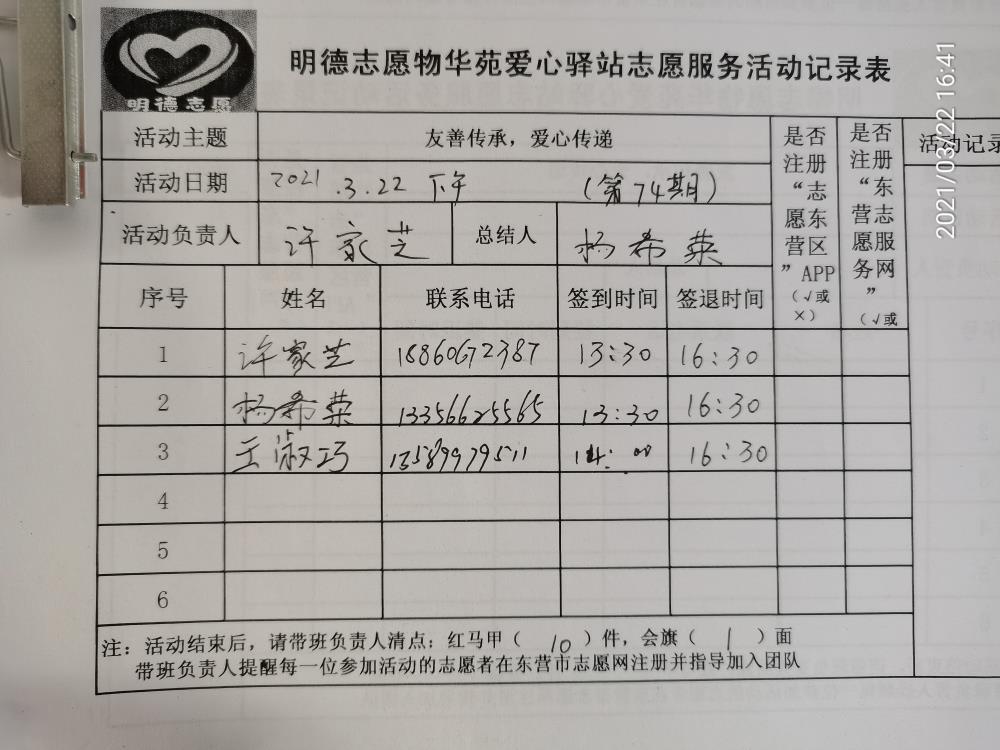 明德志愿
明德志愿物华苑爱心驿站志愿服务活动记录表
活动主题 友善传承，爱心传递 是否注册“志愿东营区”APP（√或×） 是否注册“东营志愿服务网”（√或 活动记录
活动日期 2021.3.22 下午 （第74期）
活动负责人 许家芝 总结人 杨希荣
序号 姓名 联系电话 签到时间 签退时间
1 许家芝 18860672387 13:30 16:30
2 杨希荣 13356625565 13:30 16:30
3 王淑巧 13589979511 14:00 16:30
4
5
6
注：活动结束后，请带班负责人清点：红马甲（ 10 ）件，会旗（ 1 ）面
带班负责人提醒每一位参加活动的志愿者在东营市志愿网注册并指导加入团队
2021/03/22 16:41